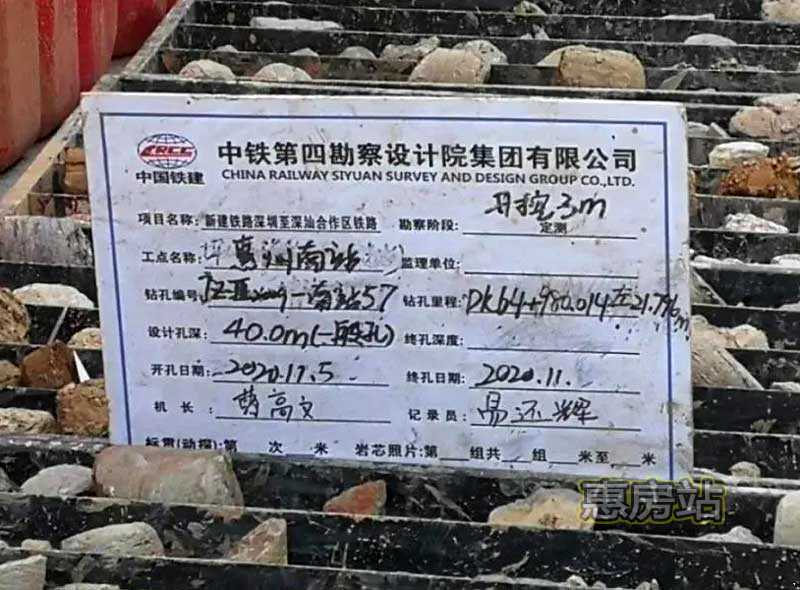 CRCC 中国铁建
中铁第四勘察设计院集团有限公司
CHINA RAILWAY SIYUAN SURVEY AND DESIGN GROUP CO.,LTD.
项目名称: 新建铁路深圳至深汕合作区铁路 勘察阶段: 定测
3m
工点名称: 惠州南站 监理单位:
钻孔编号: 南站57 钻孔里程: DK64+980.014左21.796m
设计孔深: 40.0m(一般孔) 终孔深度:
开孔日期: 2020.11.5 终孔日期: 2020.11.
机长: 高文 记录员: 易还辉
标贯(动探):第 次 米 岩芯照片:第 组共 组 米至 米
惠房站